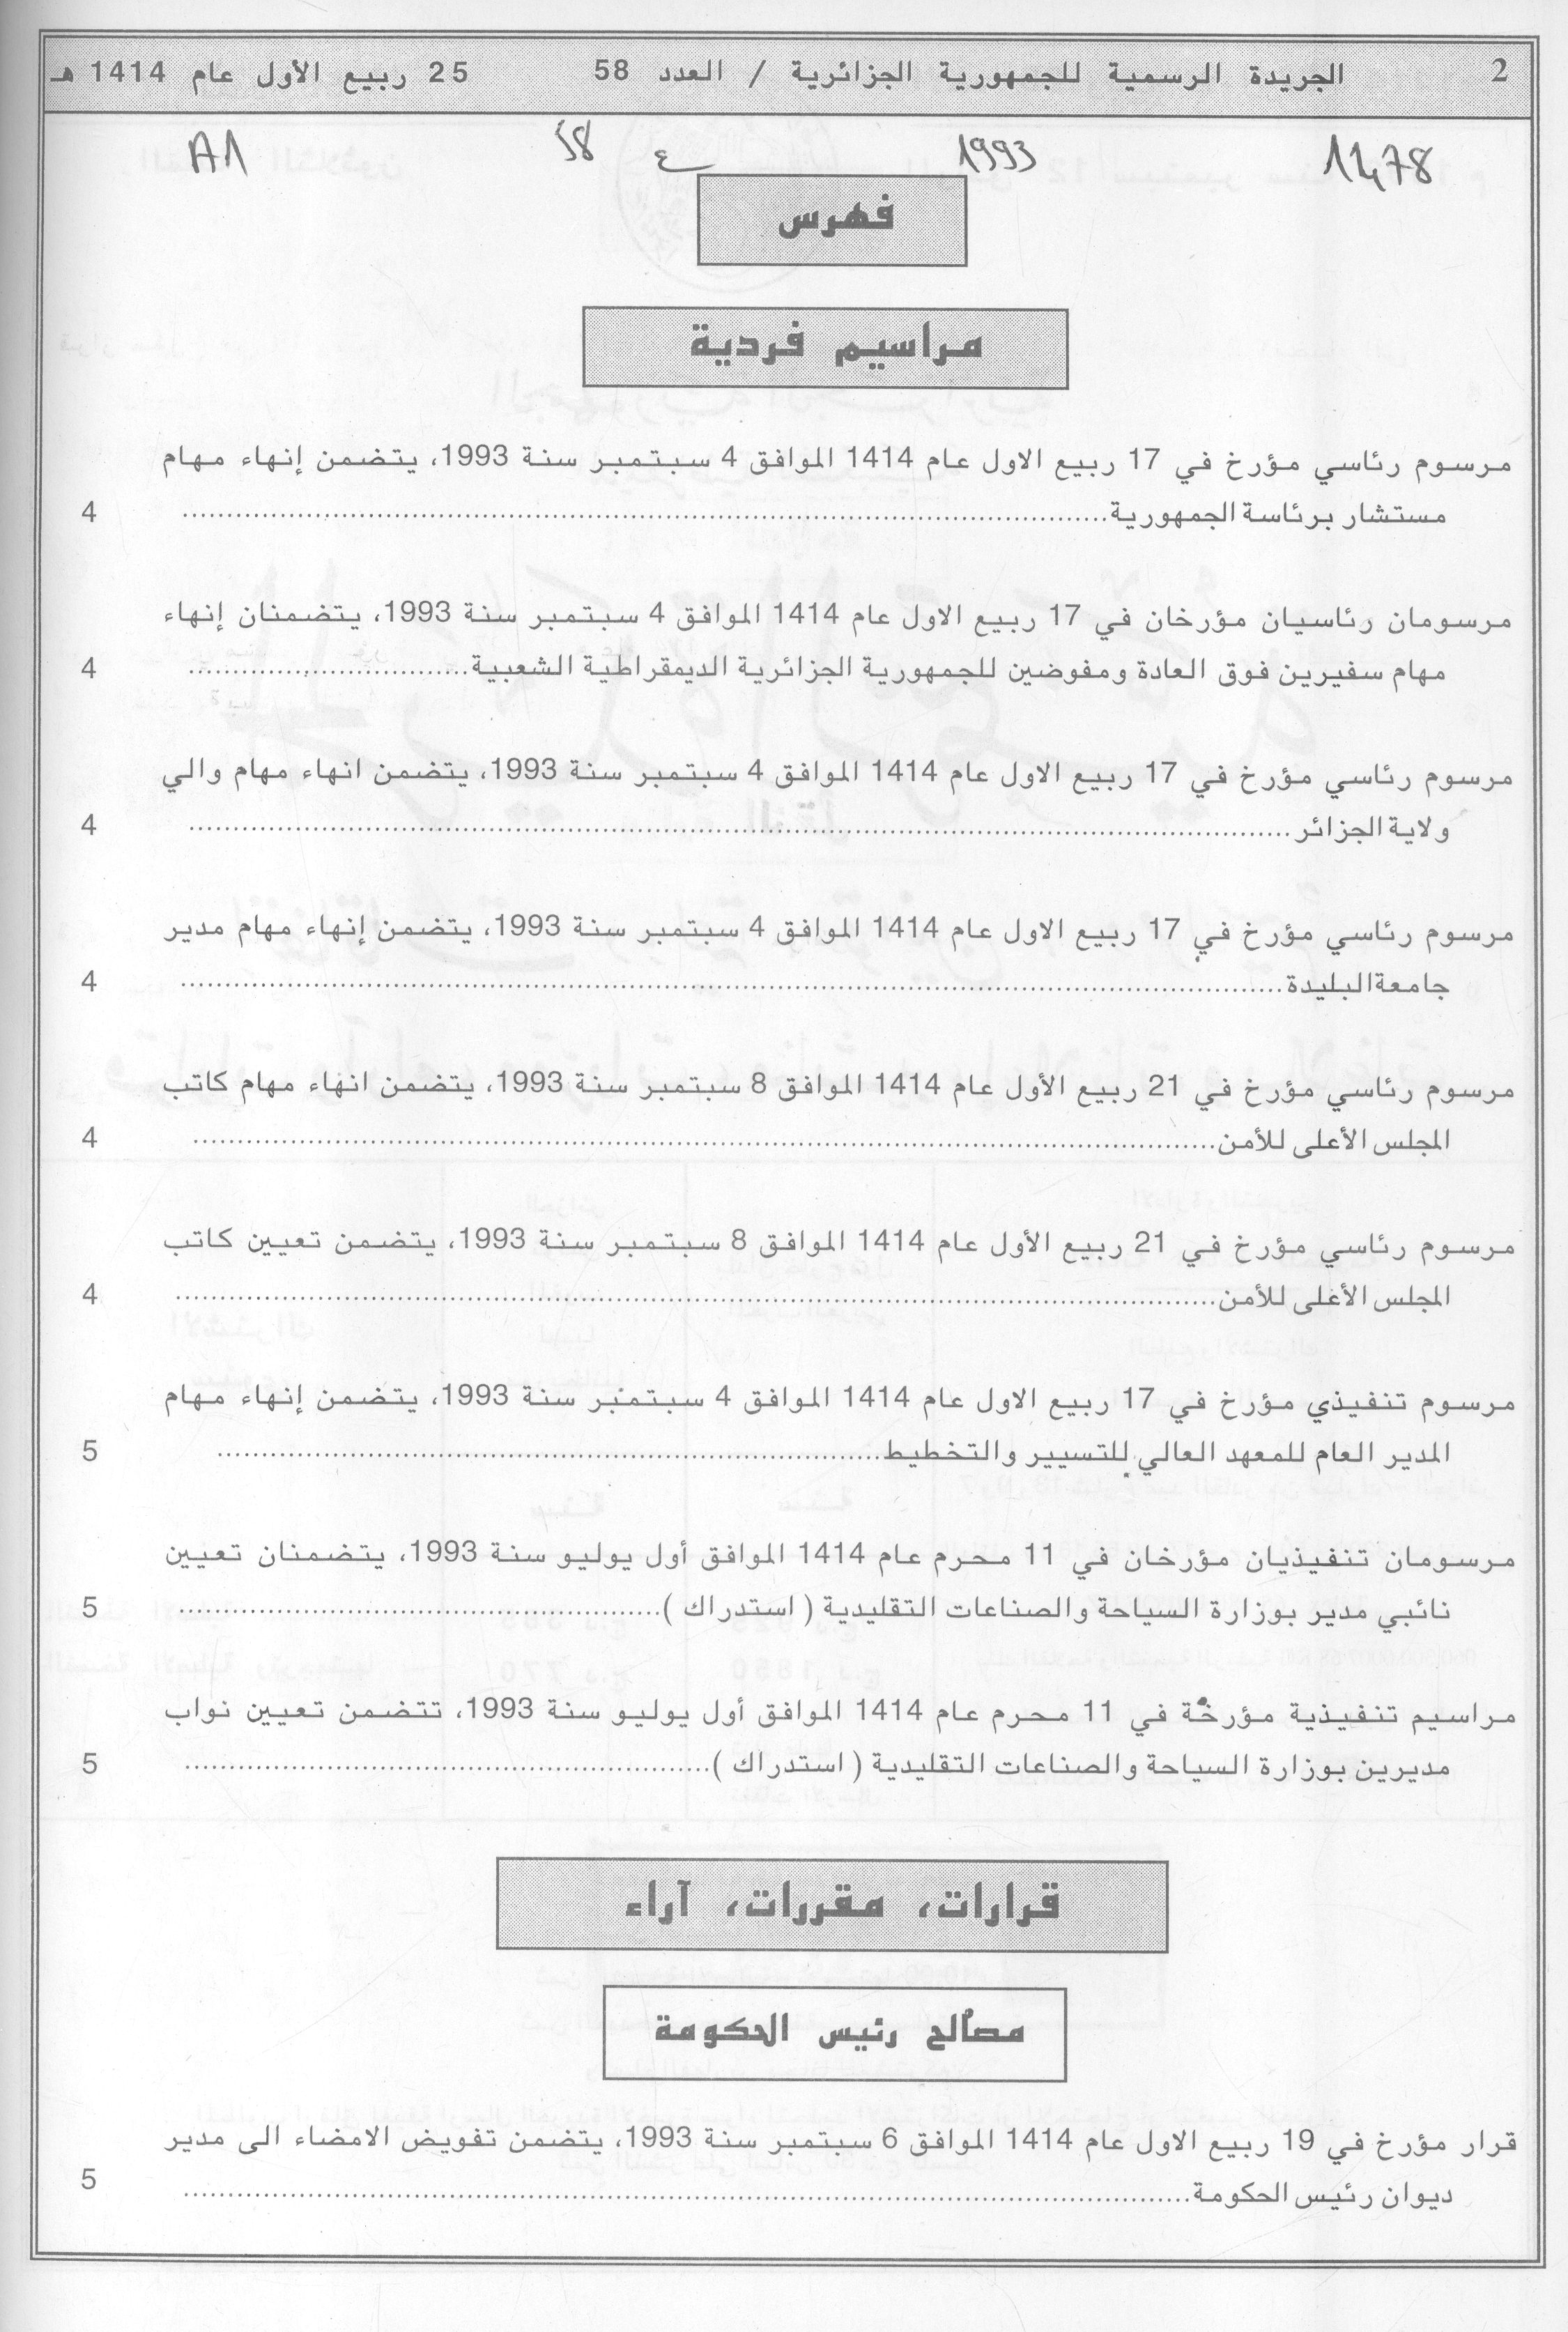 2 الجريدة الرسمية للجمهورية الجزائرية / العدد 58 25 ربيع الأول عام 1414 هـ
1478 1993 ع 58 A1
فهرس
مراسيم فردية
مرسوم رئاسي مؤرخ في 17 ربيع الاول عام 1414 الموافق 4 سبتمبر سنة 1993، يتضمن إنهاء مهام
مستشار برئاسة الجمهورية........ 4
مرسومان رئاسيان مؤرخان في 17 ربيع الاول عام 1414 الموافق 4 سبتمبر سنة 1993، يتضمنان إنهاء
مهام سفيرين فوق العادة ومفوضين للجمهورية الجزائرية الديمقراطية الشعبية........ 4
مرسوم رئاسي مؤرخ في 17 ربيع الاول عام 1414 الموافق 4 سبتمبر سنة 1993، يتضمن انهاء مهام والي
ولاية الجزائر........ 4
مرسوم رئاسي مؤرخ في 17 ربيع الاول عام 1414 الموافق 4 سبتمبر سنة 1993، يتضمن إنهاء مهام مدير
جامعة البليدة........ 4
مرسوم رئاسي مؤرخ في 21 ربيع الأول عام 1414 الموافق 8 سبتمبر سنة 1993، يتضمن انهاء مهام كاتب
المجلس الأعلى للأمن........ 4
مرسوم رئاسي مؤرخ في 21 ربيع الأول عام 1414 الموافق 8 سبتمبر سنة 1993، يتضمن تعيين كاتب
المجلس الأعلى للأمن........ 4
مرسوم تنفيذي مؤرخ في 17 ربيع الاول عام 1414 الموافق 4 سبتمبر سنة 1993، يتضمن إنهاء مهام
المدير العام للمعهد العالي للتسيير والتخطيط........ 5
مرسومان تنفيذيان مؤرخان في 11 محرم عام 1414 الموافق أول يوليو سنة 1993، يتضمنان تعيين
نائبي مدير بوزارة السياحة والصناعات التقليدية ( استدراك )........ 5
مراسيم تنفيذية مؤرخة في 11 محرم عام 1414 الموافق أول يوليو سنة 1993، تتضمن تعيين نواب
مديرين بوزارة السياحة والصناعات التقليدية ( استدراك )........ 5
قرارات، مقررات، آراء
مصالح رئيس الحكومة
قرار مؤرخ في 19 ربيع الاول عام 1414 الموافق 6 سبتمبر سنة 1993، يتضمن تفويض الامضاء الى مدير
ديوان رئيس الحكومة........ 5